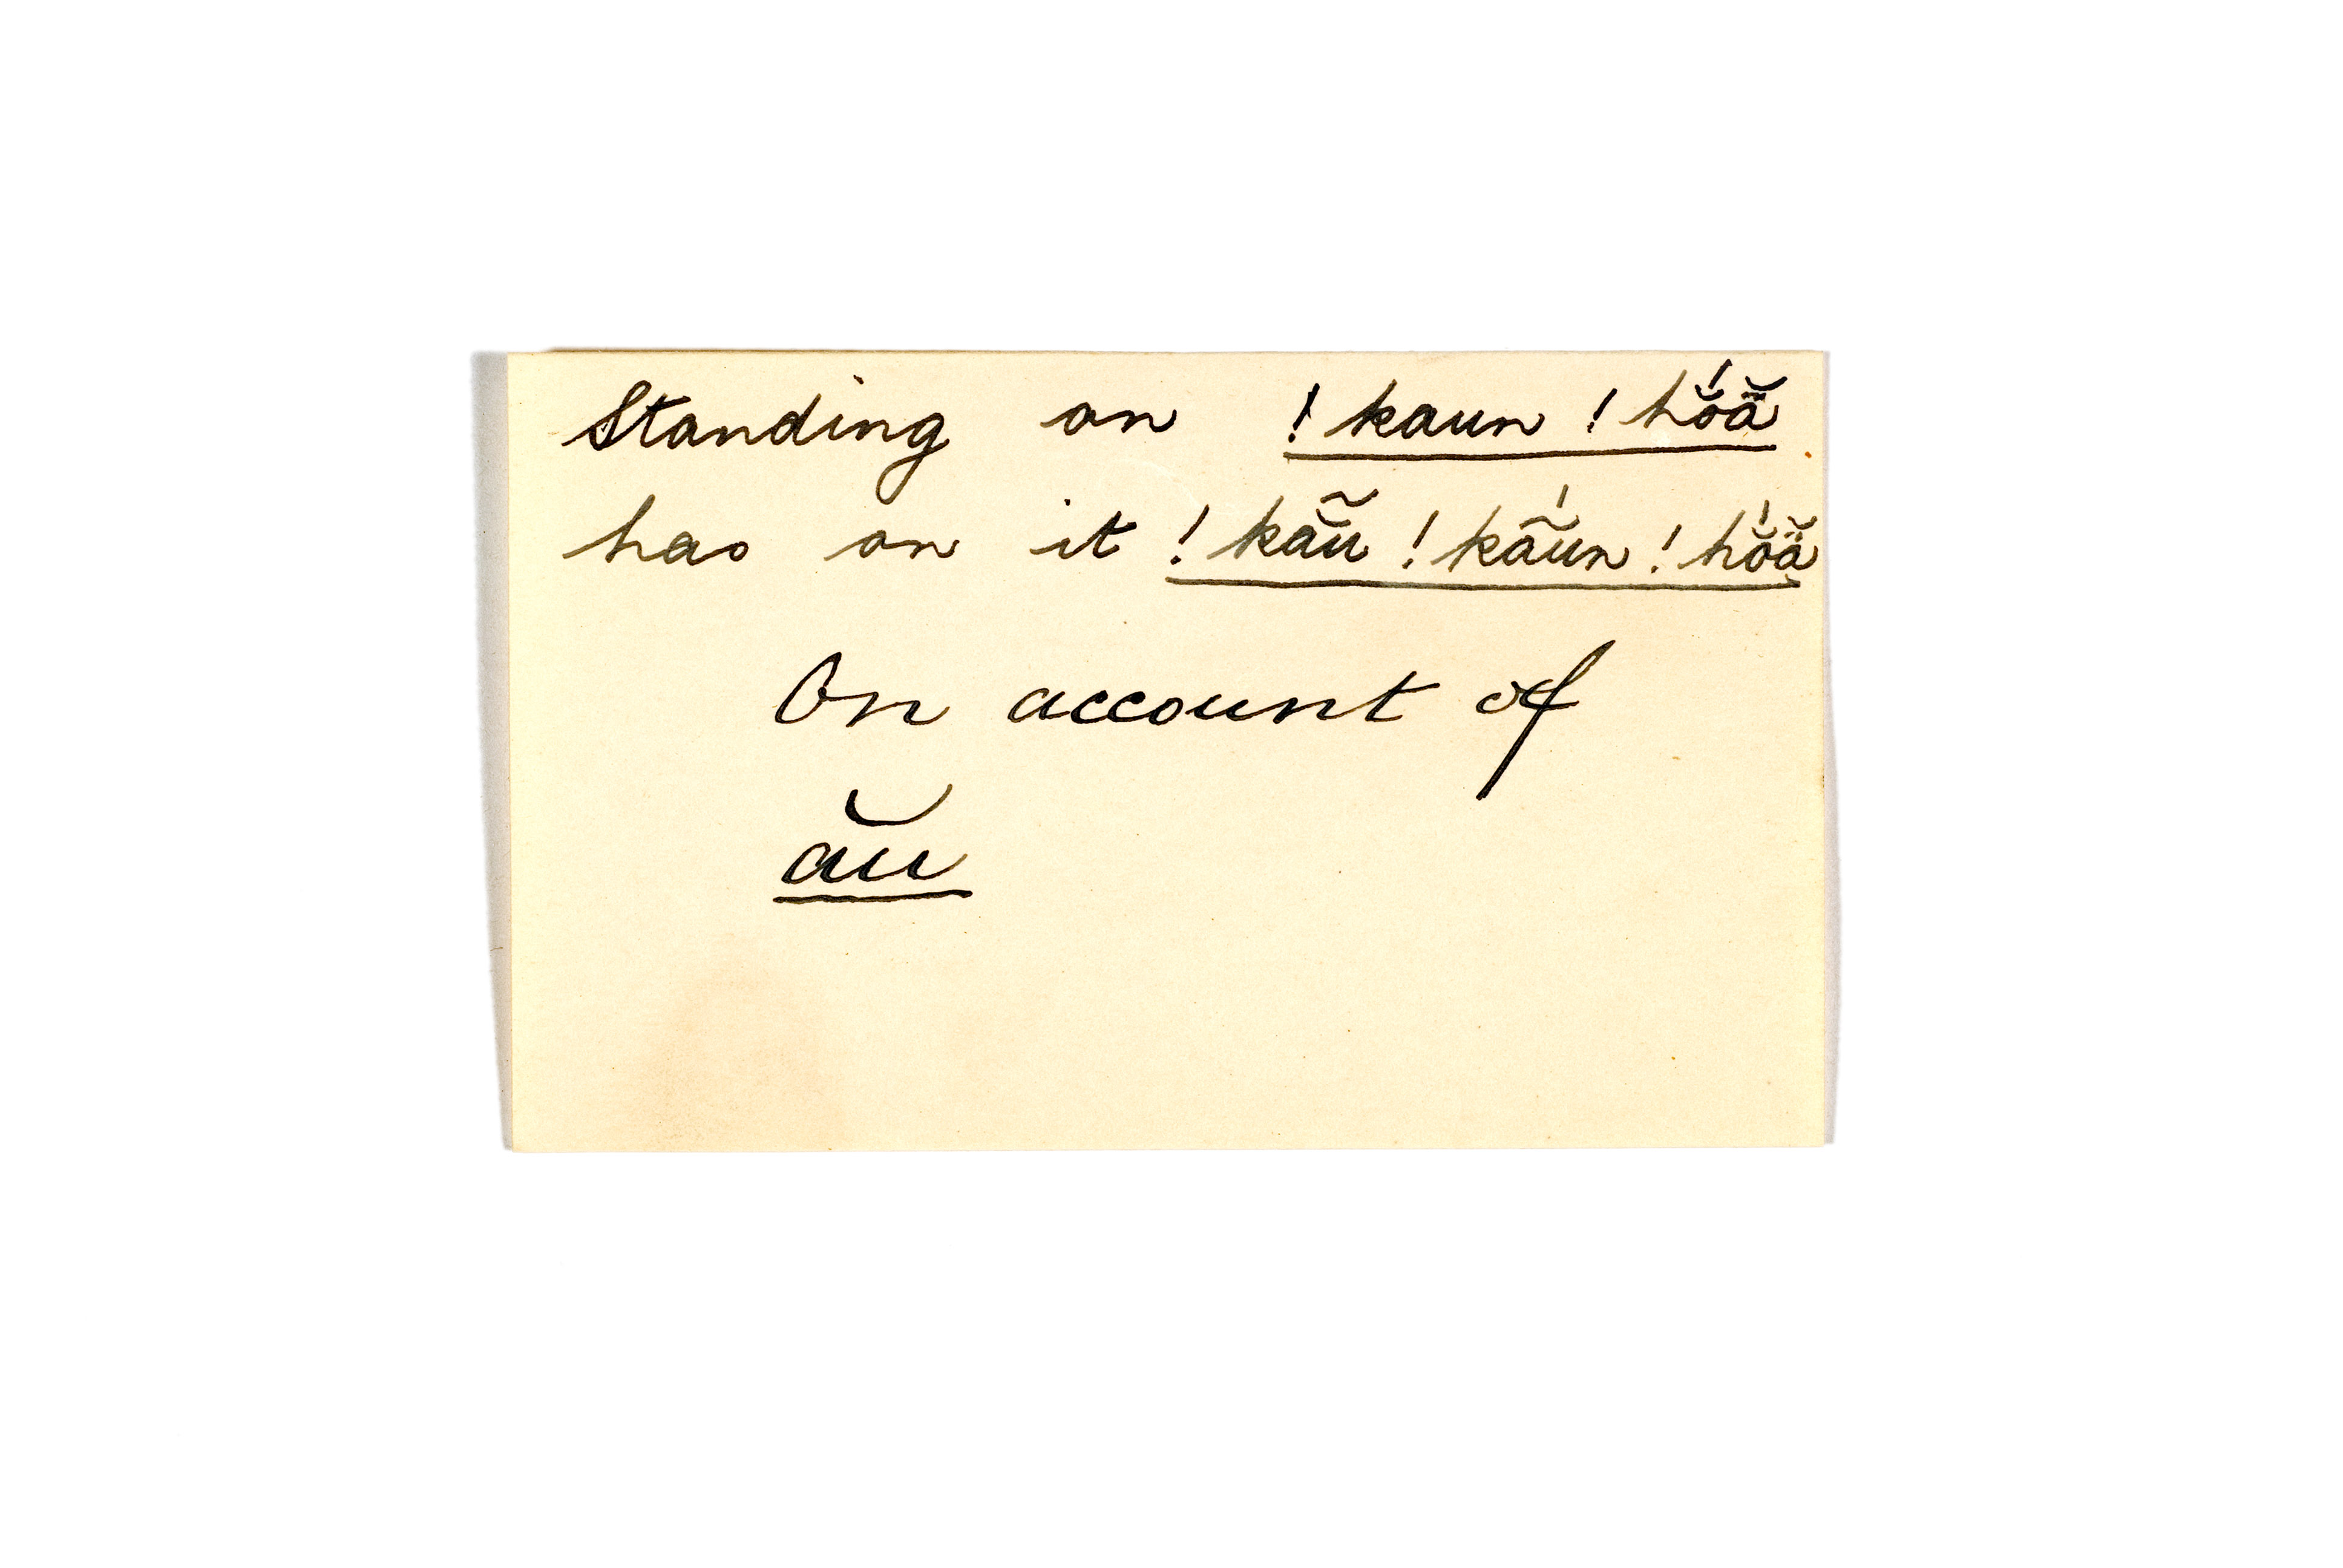 Standing on !kaun !hŏ́ä̆
has on it !kã̆u !kã́un !hŏ́ä̆
On account of
ău